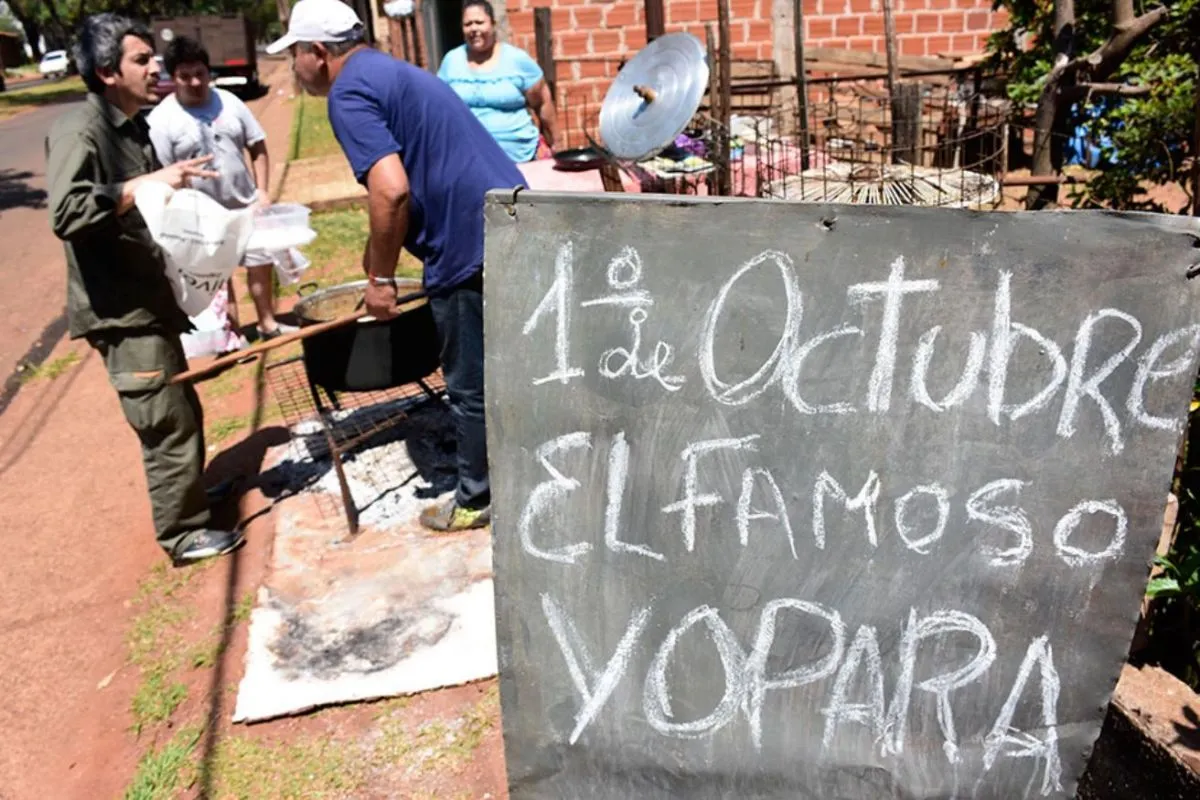 1º de Octubre
EL FAMOSO
YOPARA